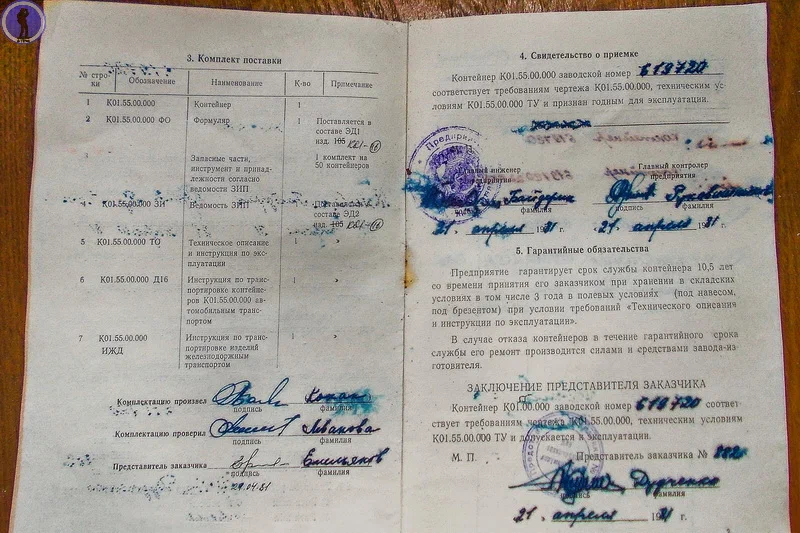 3. Комплект поставки
№ стро-
ки
Обозначение
Наименование
К-во
Примечание
1 К01.55.00.000 Контейнер 1
2 К01.55.00.000 ФО Формуляр 1 Поставляется в
составе ЭД1
изд. 105
Запасные части, 1 комплект на
инструмент и принад- 50 контейнеров
лежности согласно
ведомости ЗИП
К01.55.00.000 ЗИ Ведомость ЗИП
составе ЭД2
изд. 105
5 К01.55.00.000 ТО Техническое описание 1 »
и инструкция по экс-
плуатации
6 К01.55.00.000 Д16 Инструкция по транс- 1 »
портировке контейне-
ров К01.55.00.000 ав-
томобильным транс-
портом
7 К01.55.00.000 Инструкция по транс- 1 »
ИЖД портировке изделий
железнодорожным
транспортом
Комплектацию произвел
подпись фамилия
Комплектацию проверил Иванова
подпись фамилия
Представитель заказчика Емельянов
подпись фамилия
29.04.81
4. Свидетельство о приемке
Контейнер К01.55.00.000 заводской номер 619720
соответствует требованиям чертежа К01.55.00.000, техническим ус-
ловиям К01.55.00.000 ТУ и признан годным для эксплуатации.
Главный инженер Главный контролер
предприятия предприятия
подпись фамилия подпись фамилия
21 апреля 1981 г. 21 апреля 1981 г.
5. Гарантийные обязательства
Предприятие гарантирует срок службы контейнера 10,5 лет
со времени принятия его заказчиком при хранении в складских
условиях в том числе 3 года в полевых условиях (под навесом,
под брезентом) при условии требований «Технического описания
и инструкции по эксплуатации».
В случае отказа контейнеров в течение гарантийного срока
службы его ремонт производится силами и средствами завода-из-
готовителя.
ЗАКЛЮЧЕНИЕ ПРЕДСТАВИТЕЛЯ ЗАКАЗЧИКА
Контейнер К01.00.000 заводской номер 619720 соответ
ствует требованиям чертежа К01.55.00.000, техническим условиям
К01.55.00.000 ТУ и допускается к эксплуатации.
М. П. Представитель заказчика № 882
Дудченко
подпись фамилия
21 апреля 1981 г.